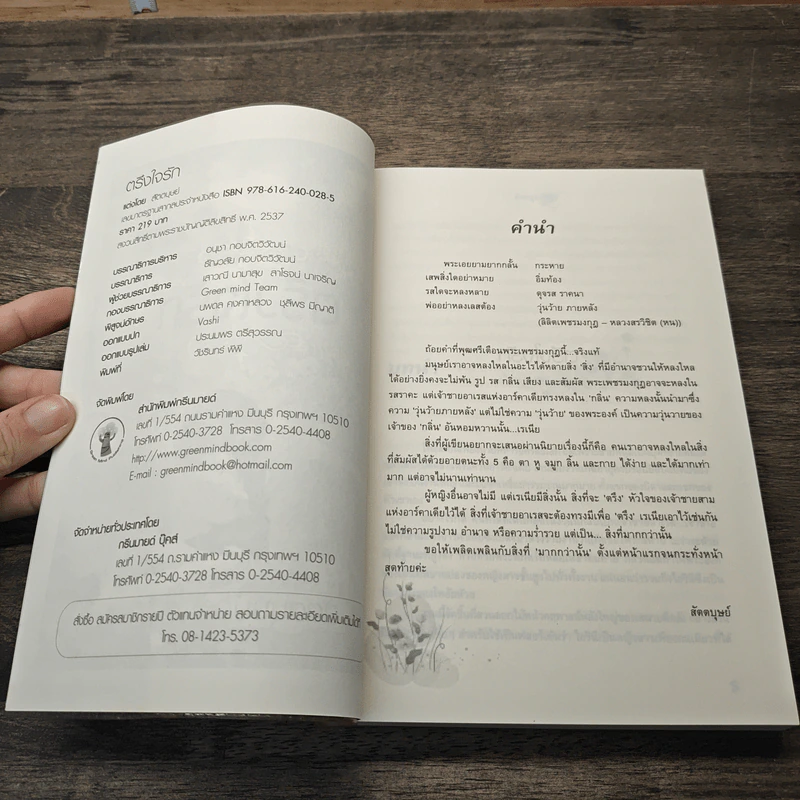 ตรึงใจรัก
แต่งโดย สัตตบุษย์
เลขมาตรฐานสากลประจำหนังสือ ISBN 978-616-240-028-5
ราคา 219 บาท
สงวนลิขสิทธิ์ตามพระราชบัญญัติลิขสิทธิ์ พ.ศ. 2537
บรรณาธิการบริหาร อนุชา กอบจิตวิวัฒน์
บรรณาธิการ ธัญวลัย กอบจิตวิวัฒน์
ผู้ช่วยบรรณาธิการ เสาวณี นามาสุข สาโรจน์ นาเจริญ
กองบรรณาธิการ Green mind Team
พิสูจน์อักษร นพดล คงคาหลวง ชุลีพร มีญาติ
ออกแบบปก Vashi
ออกแบบรูปเล่ม ประนมพร ตรีสุวรรณ
พิมพ์ที่ วัชรินทร์ พีพี
จัดพิมพ์โดย
สำนักพิมพ์กรีนมายด์
เลขที่ 1/554 ถนนรามคำแหง มีนบุรี กรุงเทพฯ 10510
โทรศัพท์ 0-2540-3728 โทรสาร 0-2540-4408
http://www.greenmindbook.com
E-mail : greenmindbook@hotmail.com
จัดจำหน่ายทั่วประเทศโดย
กรีนมายด์ บุ๊คส์
เลขที่ 1/554 ถ.รามคำแหง มีนบุรี กรุงเทพฯ 10510
โทรศัพท์ 0-2540-3728 โทรสาร 0-2540-4408
สั่งซื้อ สมัครสมาชิกรายปี ตัวแทนจำหน่าย สอบถามรายละเอียดเพิ่มเติมได้ที่
โทร. 08-1423-5373
คำนำ
พระเอยยามยากกลั้น กระหาย
เสพสิ่งใดอย่าหมาย อิ่มท้อง
รสใดจะหลงหลาย ดุจรส ราคนา
พ่ออย่าหลงเสพต้อง วุ่นว้าย ภายหลัง
(ลิลิตเพชรมงกุฎ – หลวงสรวิชิต (หน)
ถ้อยคำที่พุฒศรีเตือนพระเพชรมงกุฎนี้...จริงแท้
มนุษย์เราอาจหลงใหลในอะไรได้หลายสิ่ง 'สิ่ง' ที่มีอำนาจชวนให้หลงใหล
ได้อย่างยิ่งคงจะไม่พ้น รูป รส กลิ่น เสียง และสัมผัส พระเพชรมงกุฎอาจจะหลงใน
รสราคะ แต่เจ้าชายอาเรสแห่งอาร์คาเดียทรงหลงใน 'กลิ่น' ความหลงนั้นนำมาซึ่ง
ความ 'วุ่นว้ายภายหลัง' แต่ไม่ใช่ความ 'วุ่นว้าย' ของพระองค์ เป็นความวุ่นวายของ
เจ้าของ 'กลิ่น' อันหอมหวานนั้น...เรเนีย
สิ่งที่ผู้เขียนอยากจะเสนอผ่านนิยายเรื่องนี้ก็คือ คนเราอาจหลงใหลในสิ่ง
ที่สัมผัสได้ด้วยอายตนะทั้ง 5 คือ ตา หู จมูก ลิ้น และกาย ได้ง่าย และได้มากเท่า
มาก แต่อาจไม่นานเท่านาน
ผู้หญิงอื่นอาจไม่มี แต่เรเนียมีสิ่งนั้น สิ่งที่จะ 'ตรึง' หัวใจของเจ้าชายสาม
แห่งอาร์คาเดียไว้ได้ สิ่งที่เจ้าชายอาเรสจะต้องทรงมีเพื่อ 'ตรึง' เรเนียเอาไว้เช่นกัน
ไม่ใช่ความรูปงาม อำนาจ หรือความร่ำรวย แต่เป็น... สิ่งที่มากกว่านั้น
ขอให้เพลิดเพลินกับสิ่งที่ 'มากกว่านั้น' ตั้งแต่หน้าแรกจนกระทั่งหน้า
สุดท้ายค่ะ
สัตตบุษย์